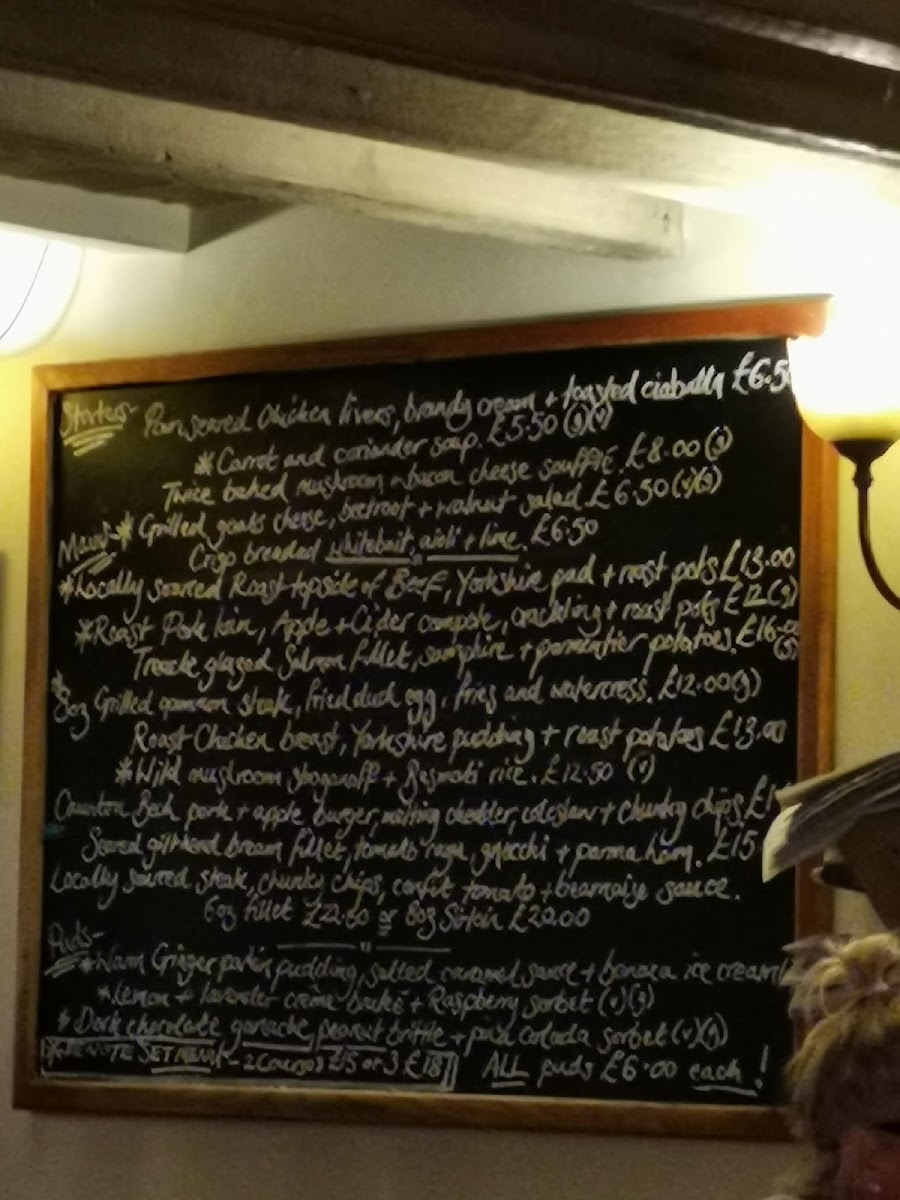 Starters- Pan seared Chicken livers, brandy cream + toasted ciabatta £6.5
*Carrot and coriander soup. £5.50 (g)(v)
Twice baked mushroom + bacon cheese soufflé. £8.00 (g)
* Grilled goats cheese, beetroot + walnut salad £6.50 (v)(g)
Crisp breaded whitebait, aioli + lime. £6.50
Mains-
*Locally sourced Roast topside of Beef, Yorkshire pud + roast pots £13.00
*Roast Pork loin, Apple + Cider compote, crackling + roast pots £12 (g)
Treacle glazed Salmon fillet, samphire + parmentier potatoes. £16.00 (g)
* 8oz Grilled gammon steak, fried duck egg, fries and watercress. £12.00 (g)
Roast Chicken breast, Yorkshire pudding + roast potatoes £13.00
*Wild mushroom stroganoff + Basmati rice. £12.50 (v)
pork + apple burger, melting cheddar, coleslaw + chunky chips. £1
Seared gilthead bream fillet, tomato ragu, gnocchi + parma ham. £15
Locally sourced steak, chunky chips, confit tomato + bearnaise sauce.
6oz fillet £22.50 or 8oz Sirloin £20.00
Puds-
*Warm Ginger parkin pudding, salted caramel sauce + banana ice cream
*Lemon + lavender crème brulée + Raspberry sorbet (v)(g)
* Dark chocolate ganache, peanut brittle + piña colada sorbet (v)(g)
SET MENU - 2 Courses £15 or 3 £18
ALL puds £6.00 each!